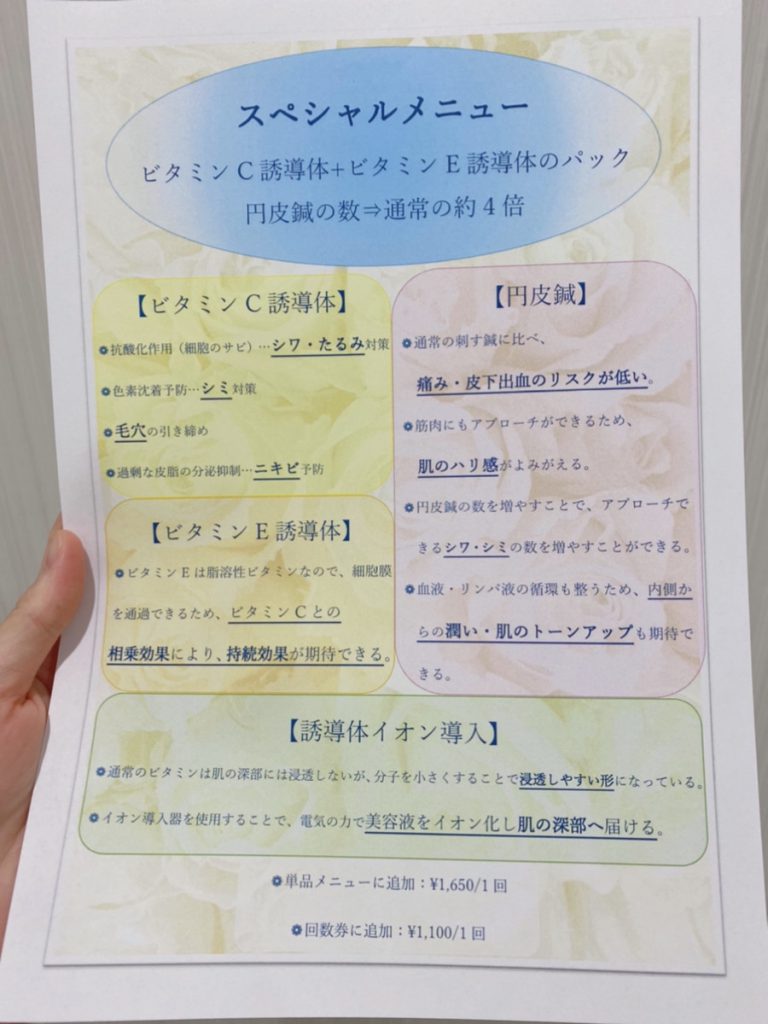 スペシャルメニュー
ビタミンC誘導体+ビタミンE誘導体のパック
円皮鍼の数⇒通常の約4倍
【ビタミンC誘導体】
抗酸化作用（細胞のサビ）…シワ・たるみ対策
色素沈着予防…シミ対策
毛穴の引き締め
過剰な皮脂の分泌抑制…ニキビ予防
【ビタミンE誘導体】
ビタミンEは脂溶性ビタミンなので、細胞膜
を通過できるため、ビタミンCとの
相乗効果により、持続効果が期待できる。
【円皮鍼】
通常の刺す鍼に比べ、
痛み・皮下出血のリスクが低い。
筋肉にもアプローチができるため、
肌のハリ感がよみがえる。
円皮鍼の数を増やすことで、アプローチで
きるシワ・シミの数を増やすことができる。
血液・リンパ液の循環も整うため、内側か
らの潤い・肌のトーンアップも期待で
きる。
【誘導体イオン導入】
通常のビタミンは肌の深部には浸透しないが、分子を小さくすることで浸透しやすい形になっている。
イオン導入器を使用することで、電気の力で美容液をイオン化し肌の深部へ届ける。
単品メニューに追加：¥1,650/1回
回数券に追加：¥1,100/1回